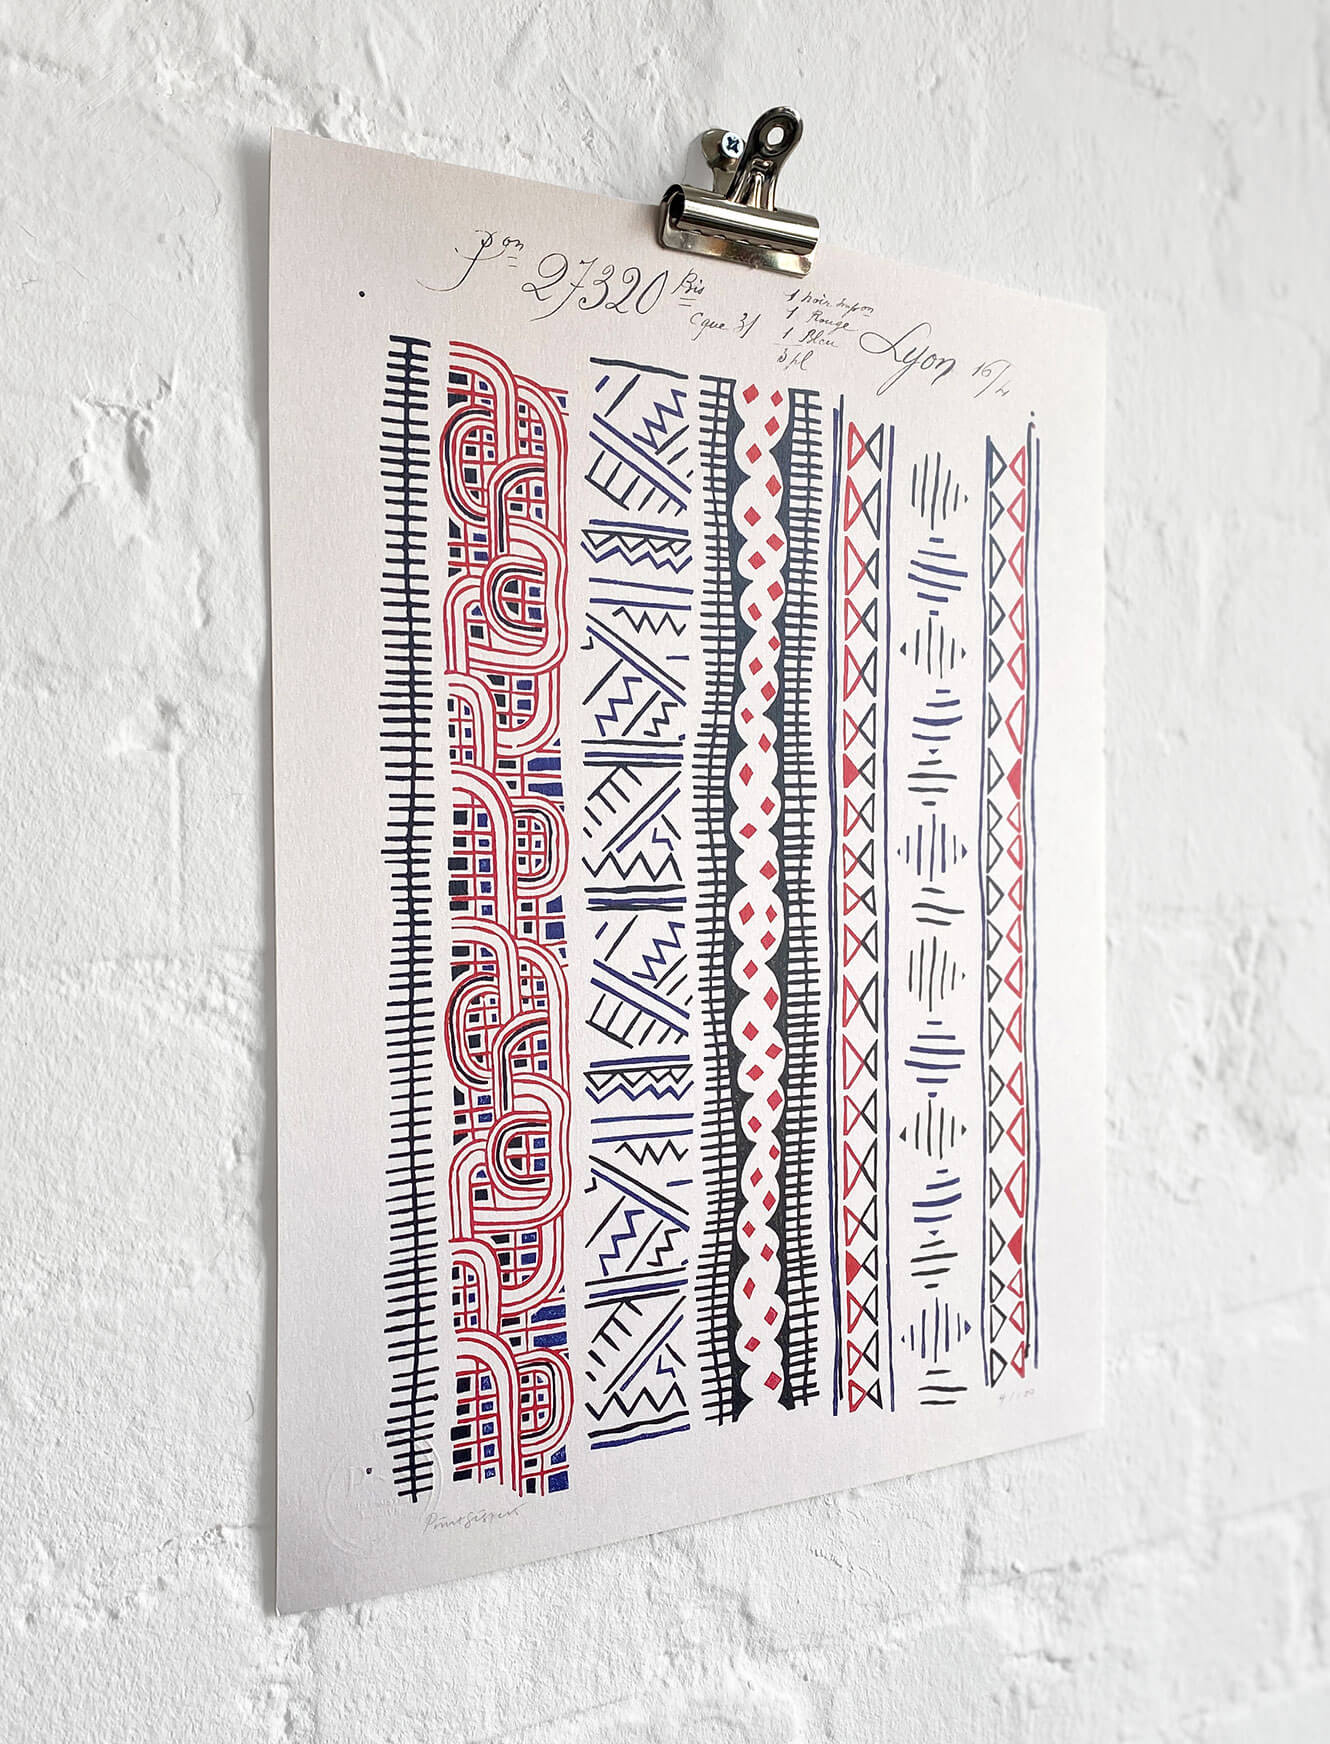 Pon 27320 Bis
Cque 31
1 Noir Impon
1 Rouge
1 Bleu
3 pl
Lyon 16/4
4/100
Print Sisters